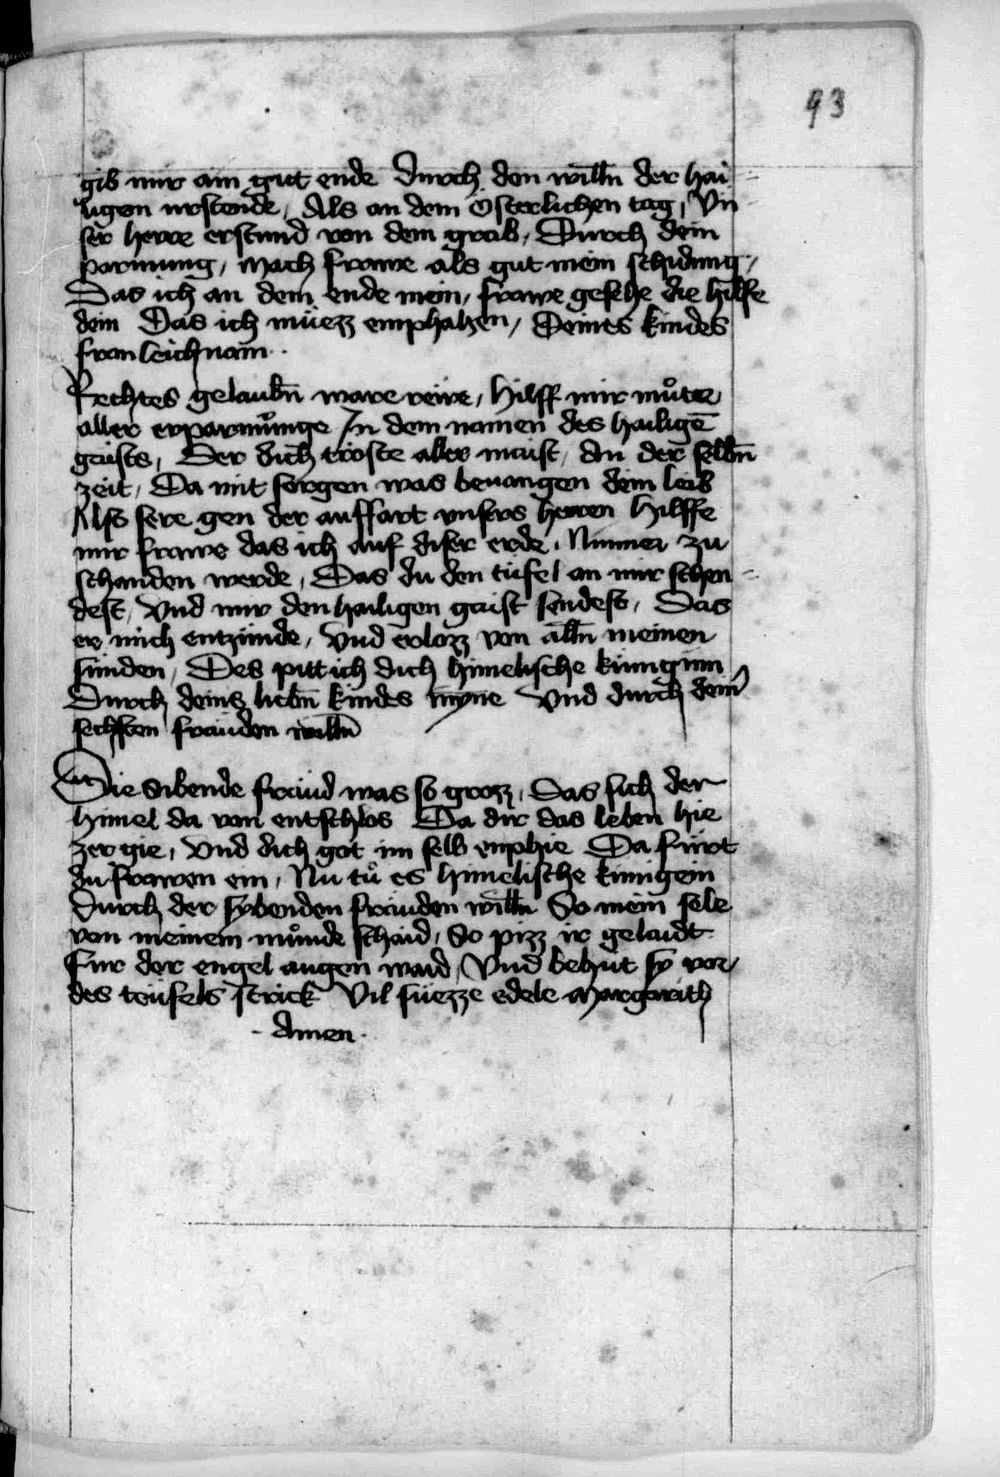 93
gib mir ain gut ende Durch den willn̄ der hai⸗
ligen urstende, Als an dem Osterlichen tag, Vn⸗
ser herre erstund von dem grab, Durch dein
parmung, Mach frawe als gut mein schidung,
Das ich an dem ende mein, frawe gesehe die hilfe
dein Das ich müezz emphahen, Deines kindes
fron leichnam.
Rechtes gelaubn̄ ware reive, hilff mir můter
aller erparmůnge In dem namen des hailigē
gaists, Der dich troste aller maist, An der selbn̄
zeit, Da mit sorgen was bevangen dein leib
Also sere gen der auffart vnsers herren Hilffe
mir frawe das ich auf diser erde, Nimmer zu
schanden werde, Das du den tüfel an mir schen⸗
dest, Vnd mir den hailigen gaist sendest, Das
er mich entzünde, Vnd erlozz von alln̄ meinen
sunden, Des pitt ich dich himelische kunginn
Durch deins liebn̄ kindes mỹne Vnd durch dein
sechsten fräuden willn̄
Die sibende fräud was so grozz, Das sich der
himel da von entschlos Da dir das leben hie
zergie, Vnd dich got im selb enphie Da fürt
du frawen ein, Nu tů es himelische kunigein
Durch der sybenden fräuden willn̄ So mein sele
von meinem můnde schaid, So pizz ir gelaidt
Fur der engel augen waid, Vnd behut sy vor
des teüfels strick Vil süezze edele Margarith
· Amen ·